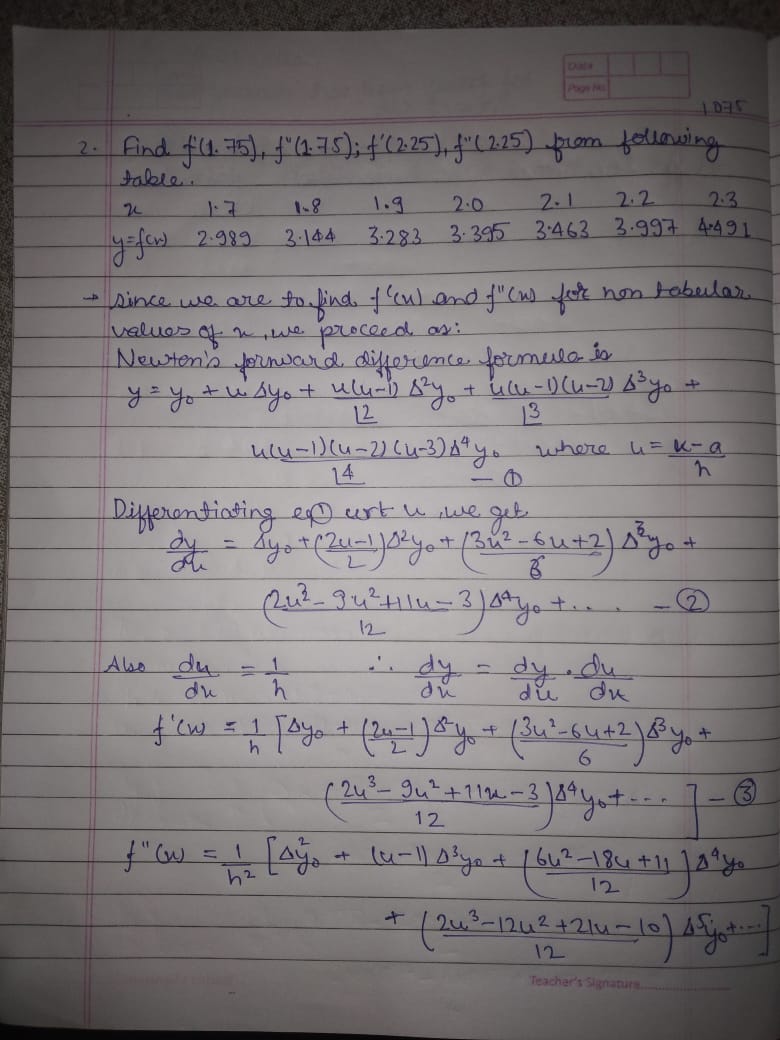 Date
Page No.
1075
2. Find f'(1.75), f"(1.75); f'(2.25), f"(2.25) from following
table.
x 1.7 1.8 1.9 2.0 2.1 2.2 2.3
y=f(x) 2.989 3.144 3.283 3.395 3.463 3.997 4.491
→ Since we are to find f'(x) and f"(x) for non tabular
values of x, we proceed as:
Newton's forward difference formula is
y = y₀ + u Δy₀ + u(u-1)/⌊2 Δ²y₀ + u(u-1)(u-2)/⌊3 Δ³y₀ +
u(u-1)(u-2)(u-3)/⌊4 Δ⁴y₀ where u = x-a/h
— ①
Differentiating eq① wrt u, we get
dy/du = Δy₀ + (2u-1/2)Δ²y₀ + (3u²-6u+2/6) Δ³y₀ +
(2u³-9u²+11u-3/12)Δ⁴y₀ + .... — ②
Also du/dx = 1/h ∴ dy/dx = dy/du . du/dx
f'(x) = 1/h [Δy₀ + (2u-1/2)Δ²y₀ + (3u²-6u+2/6)Δ³y₀ +
(2u³-9u²+11u-3/12)Δ⁴y₀+ --- ] — ③
f"(x) = 1/h² [Δ²y₀ + (u-1)Δ³y₀ + (6u²-18u+11/12)Δ⁴y₀
+ (2u³-12u²+21u-10/12) Δ⁵y₀+---]
Teacher's Signature